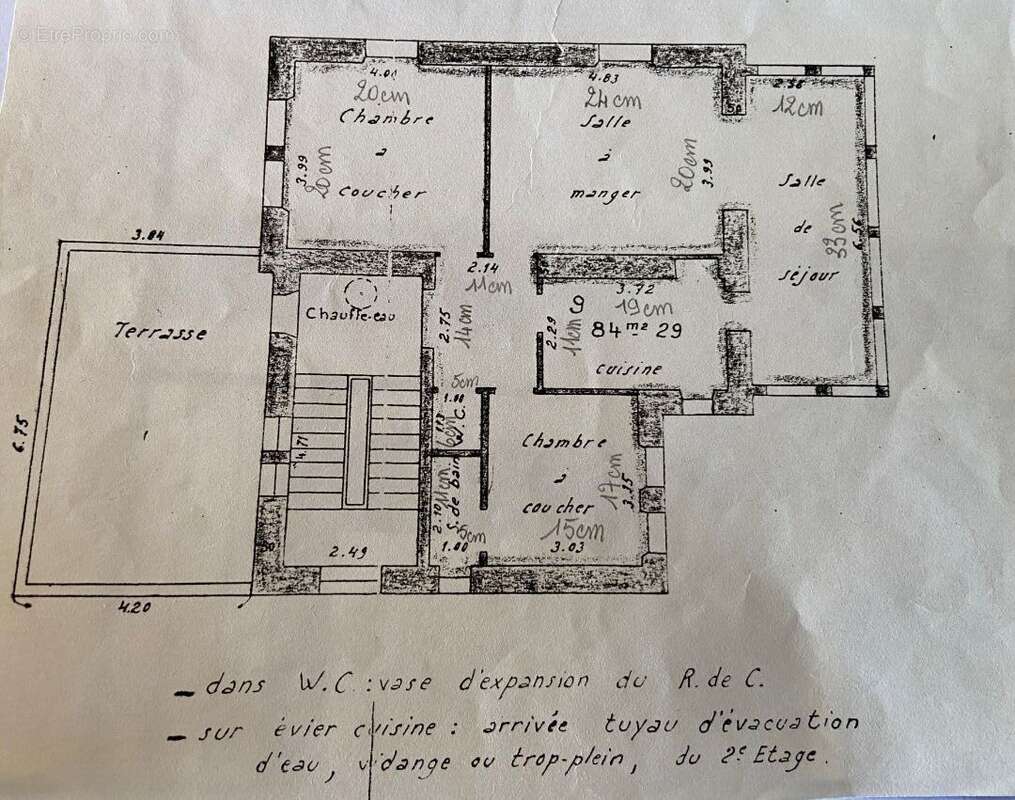 © EtreProprio.com
4.00
20cm
Chambre
à
coucher
3.99
20cm
4.83
24cm
Salle
à
manger
20cm
3.99
50
2.58
12cm
Salle
de
séjour
33cm
6.56
3.84
Terrasse
6.75
4.20
Chauffe-eau
4.71
2.49
2.14
11cm
2.75
14cm
3.72
19cm
9
84 m2 29
2.29
11cm
cuisine
5cm
1.00
W.C.
6cm
S. de bain
2.10
11cm
5cm
1.00
Chambre
à
coucher
17cm
3.35
15cm
3.03
– dans W.C. : vase d'expansion du R. de C.
– sur évier cuisine : arrivée tuyau d'évacuation
d'eau, vidange ou trop-plein, du 2e Etage.